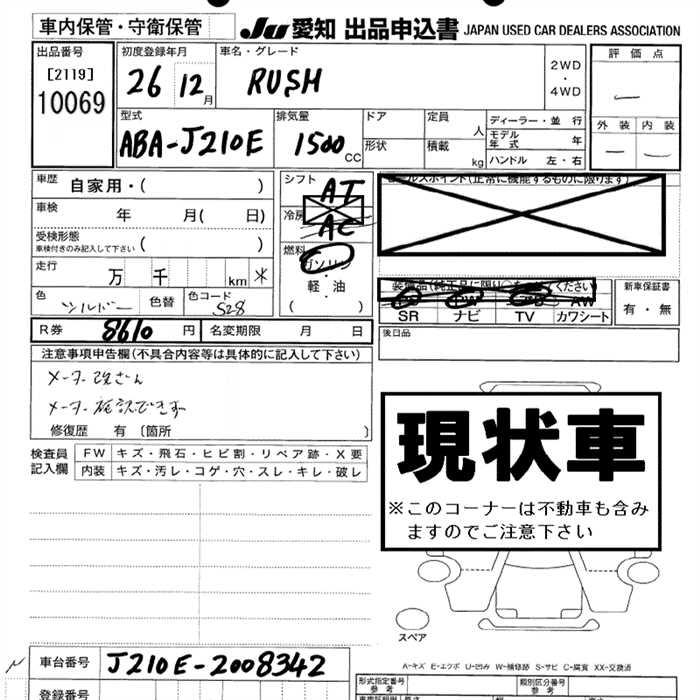 車内保管・守衛保管
Ju 愛知 出品申込書 JAPAN USED CAR DEALERS ASSOCIATION
出品番号
[2119]
10069
初度登録年月
26 12月
車名・グレード
RUSH
2WD
・
4WD
評価点
—
外装 内装
— —
型式
ABA-J210E
排気量
1500 CC
ドア
形状
定員 人
積載 kg
ディーラー・並行
モデル年式 年
ハンドル 左・右
車歴 自家用・( )
車検 年 月( 日)
受検形態
車検付きのみ記入して下さい ( )
走行 万 千 km *
色 シルバー 色替 色コード S28
シフト AT
冷房 AC
燃料
ガソリン
・
軽・油
( )
セールスポイント(正常に機能するものに限ります)
装備品(純正品に限り○をつけてください)
AW
SR ナビ TV カワシート
新車保証書
有・無
R券 8610 円 名変期限 月 日
後日品
注意事項申告欄(不具合内容等は具体的に記入して下さい)
メーター改ざん
メーター確認できず
修復歴 有 〔箇所 〕
検査員記入欄
FW キズ・飛石・ヒビ割・リペア跡・X要
内装 キズ・汚レ・コゲ・穴・スレ・キレ・破レ
現状車
※このコーナーは不動車も含み
ますのでご注意下さい
スペア
A-キズ E-エクボ U-凹み W-補修跡 S-サビ C-腐食 XX-交換済
車台番号 J210E-2008342
登録番号
形式指定番号
参考
類別区分番号
参考